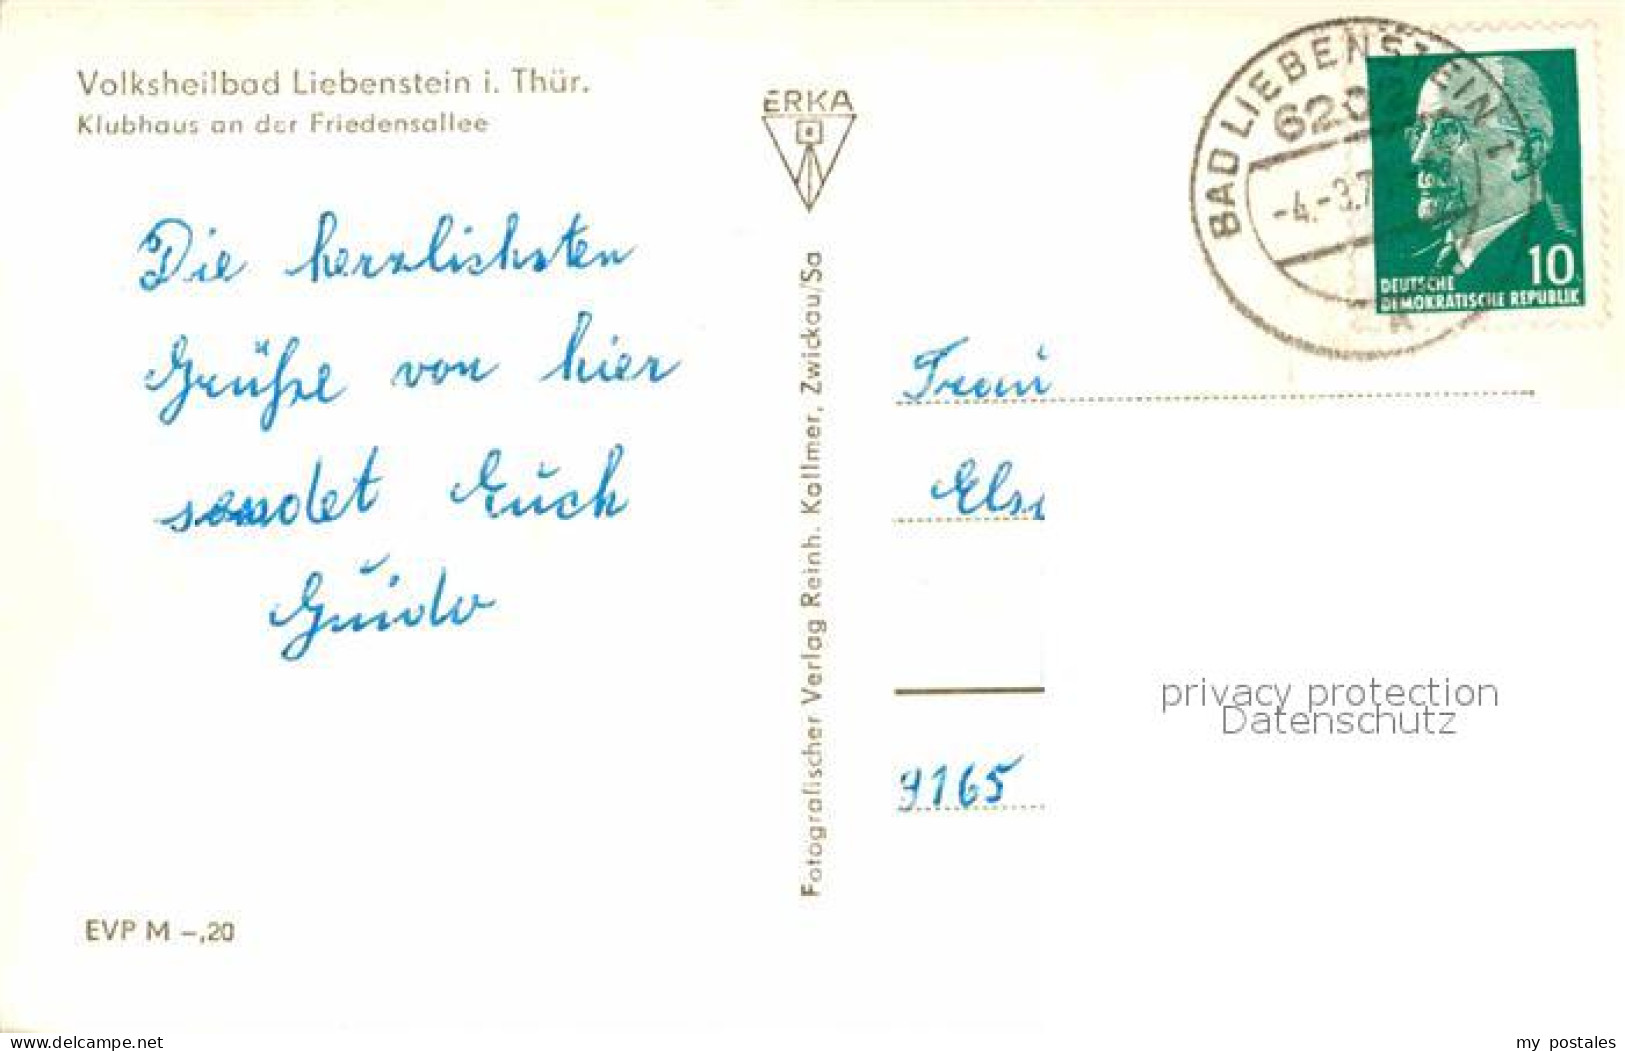 Volksheilbad Liebenstein i. Thür.
Klubhaus an der Friedensallee
Die herzlichsten
Grüße von hier
sendet Euch
Guido
EVP M –,20
ERKA
Fotografischer Verlag Reinh. Kallmer, Zwickau/Sa
BAD LIEBENSTEIN 1
620
-4.-3.7
A
10
DEUTSCHE
DEMOKRATISCHE REPUBLIK
Frau
Els
9165
privacy protection
Datenschutz
www.delcampe.net
my_postales